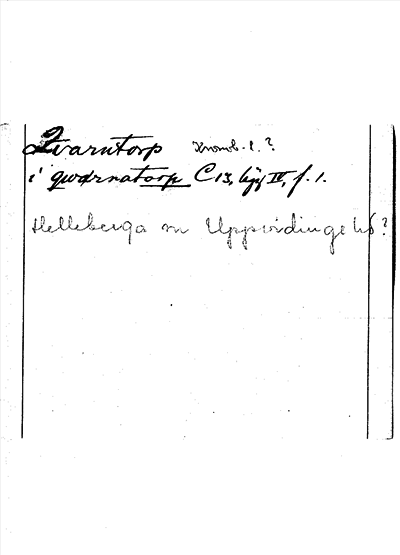 Qvarntorp Kronob. l. ?
i qwærnatorp C 13, lägg IV, f. 1.
Helleberga sn Uppvidinge hd ?